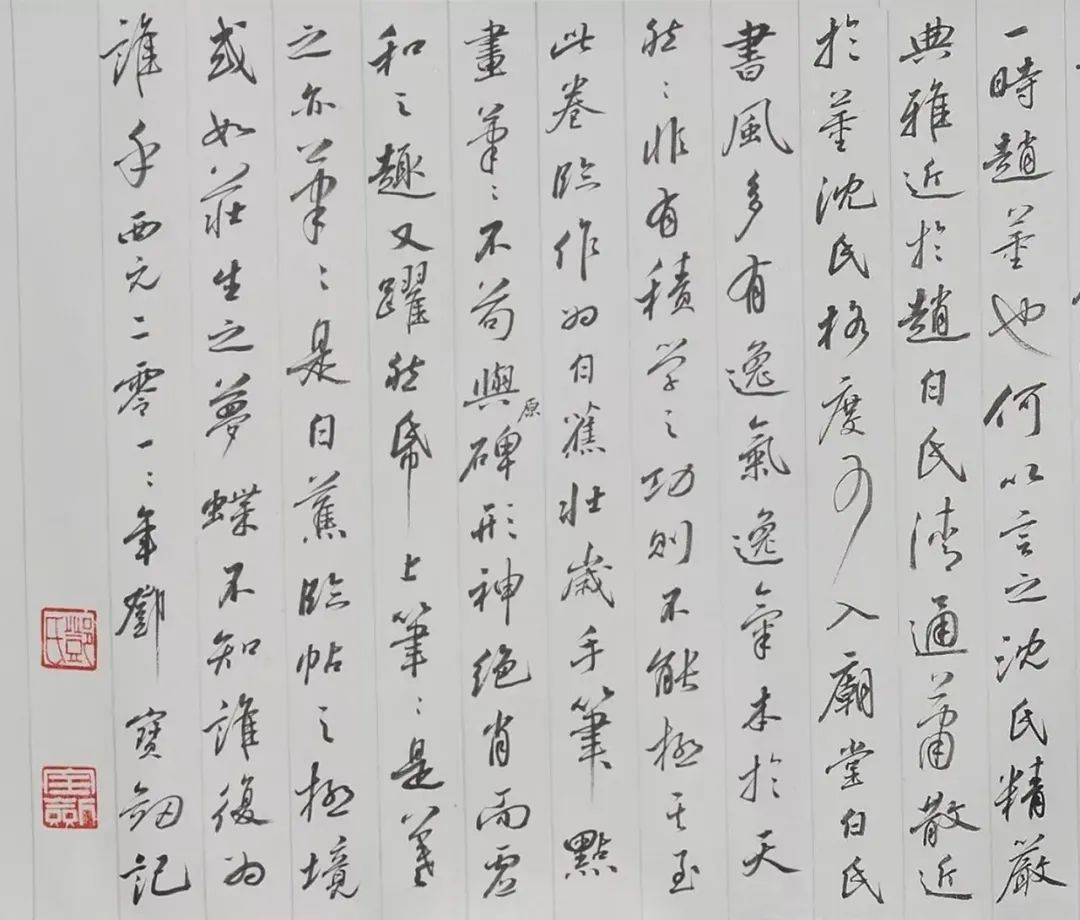 一時趙董也何以言之沈氏精嚴
典雅近於趙白氏清通蕭散近
於董沈氏格度可入廟堂白氏
書風多有逸氣逸氣本於天
然然非有積学之功則不能極其至
此卷臨作為白蕉壯歲手筆點
畫筆筆不苟與原碑形神絕肖而虛
和之趣又躍然帋上筆筆是羲
之亦筆筆是白蕉臨帖之極境
或如莊生之夢蝶不知誰復為
誰乎西元二零一一年鄧寶劍記
鄧氏